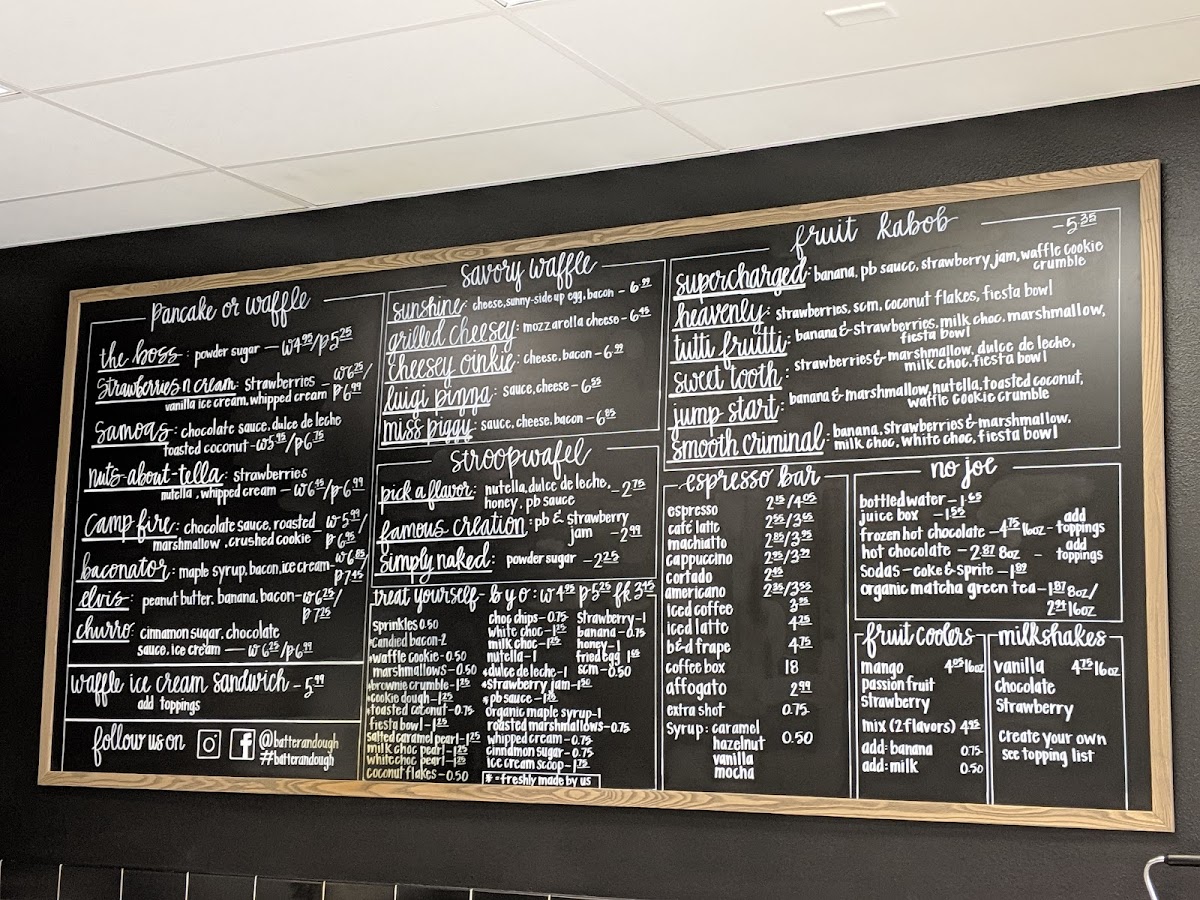 pancake or waffle
the boss: powder sugar — w4.95/p5.25
strawberries n cream: strawberries — w6.25/
vanilla ice cream, whipped cream p6.99
samoas: chocolate sauce, dulce de leche
toasted coconut - w5.95/p6.75
nuts-about-tella: strawberries
nutella, whipped cream — w6.45/p6.99
camp fire: chocolate sauce, roasted - w5.99/
marshmallow, crushed cookie p6.95/
baconator: maple syrup, bacon, ice cream - w6.85/
p7.45
elvis: peanut butter, banana, bacon - w6.25/
p7.25
churro: cinnamon sugar, chocolate
sauce, ice cream — w6.25/p6.99
waffle ice cream sandwich - 5.99
add toppings
follow us on f @batterandough
#batterandough
savory waffle
sunshine: cheese, sunny-side up egg, bacon - 6.99
grilled cheesey: mozzarolla cheese - 6.45
cheesey oinkie: cheese, bacon - 6.99
luigi pizza: sauce, cheese - 6.55
miss piggy: sauce, cheese, bacon - 6.85
stroopwafel
pick a flavor: nutella, dulce de leche, - 2.75
honey, pb sauce
famous creation: pb & strawberry
jam - 2.99
simply naked: powder sugar - 2.25
treat yourself - b y o: w4.95 p5.25 fk 3.45
sprinkles 0.50
*candied bacon - 2
*waffle cookie - 0.50
marshmallows - 0.50
*brownie crumble - 1.25
*cookie dough - 1.25
*toasted coconut - 0.75
fiesta bowl - 1.25
salted caramel pearl - 1.25
milk choc pearl - 1.25
white choc pearl - 1.25
coconut flakes - 0.50
choc chips - 0.75 strawberry - 1
white choc - 1.25 banana - 0.75
milk choc - 1.25 honey - 1
nutella - 1 fried egg 1.65
*dulce de leche - 1 scm - 0.50
*strawberry jam - 1.50
*pb sauce - 1.25
organic maple syrup - 1
roasted marshmallows - 0.75
whipped cream - 0.75
cinnamon sugar - 0.75
ice cream scoop - 1.75
* = freshly made by us
fruit kabob - 5.35
supercharged: banana, pb sauce, strawberry jam, waffle cookie
crumble
heavenly: strawberries, scm, coconut flakes, fiesta bowl
tutti fruitti: banana & strawberries, milk choc, marshmallow,
fiesta bowl
sweet tooth: strawberries & marshmallow, dulce de leche,
milk choc, fiesta bowl
jump start: banana & marshmallow, nutella, toasted coconut,
waffle cookie crumble
smooth criminal: banana, strawberries & marshmallow,
milk choc, white choc, fiesta bowl
espresso bar
espresso 2.15/4.05
café latte 2.55/3.65
machiatto 2.85/3.95
cappuccino 2.95/3.99
cortado 2.45
americano 2.35/3.55
iced coffee 3.25
iced latte 4.25
b&d frape 4.75
coffee box 18
affogato 2.99
extra shot 0.75
syrup: caramel
hazelnut 0.50
vanilla
mocha
no joe
bottled water - 1.65
juice box - 1.55
frozen hot chocolate - 4.75 16oz - add toppings
hot chocolate - 2.87 8oz - add toppings
sodas - coke & sprite - 1.89
organic matcha green tea - 1.87 8oz/
2.91 16oz
fruit coolers
mango 4.05 16oz
passion fruit
strawberry
mix (2 flavors) 4.95
add: banana 0.75
add: milk 0.50
milkshakes
vanilla 4.75 16oz
chocolate
strawberry
create your own
see topping list